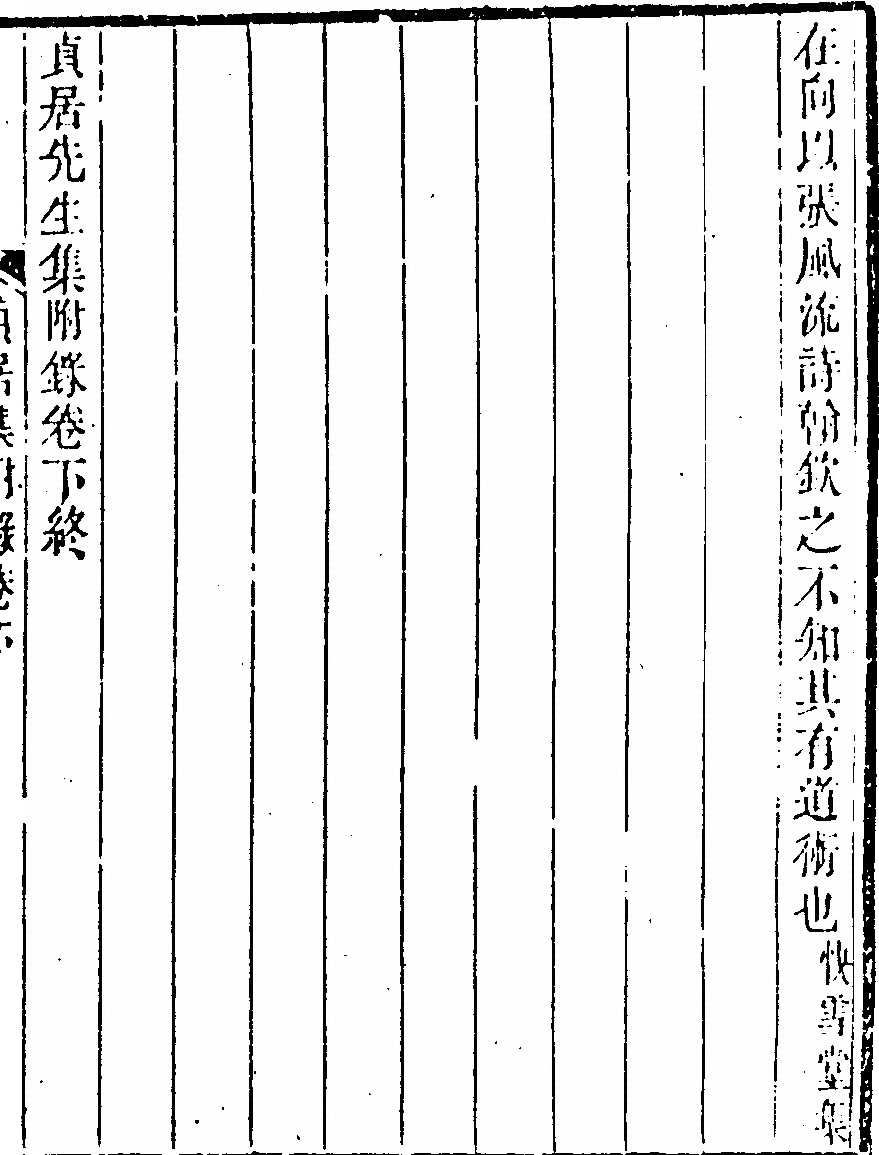 在向以張風流詩翰欽之不知其有道術也快雪堂集
貞居先生集附錄卷下終
貞居集附錄卷下